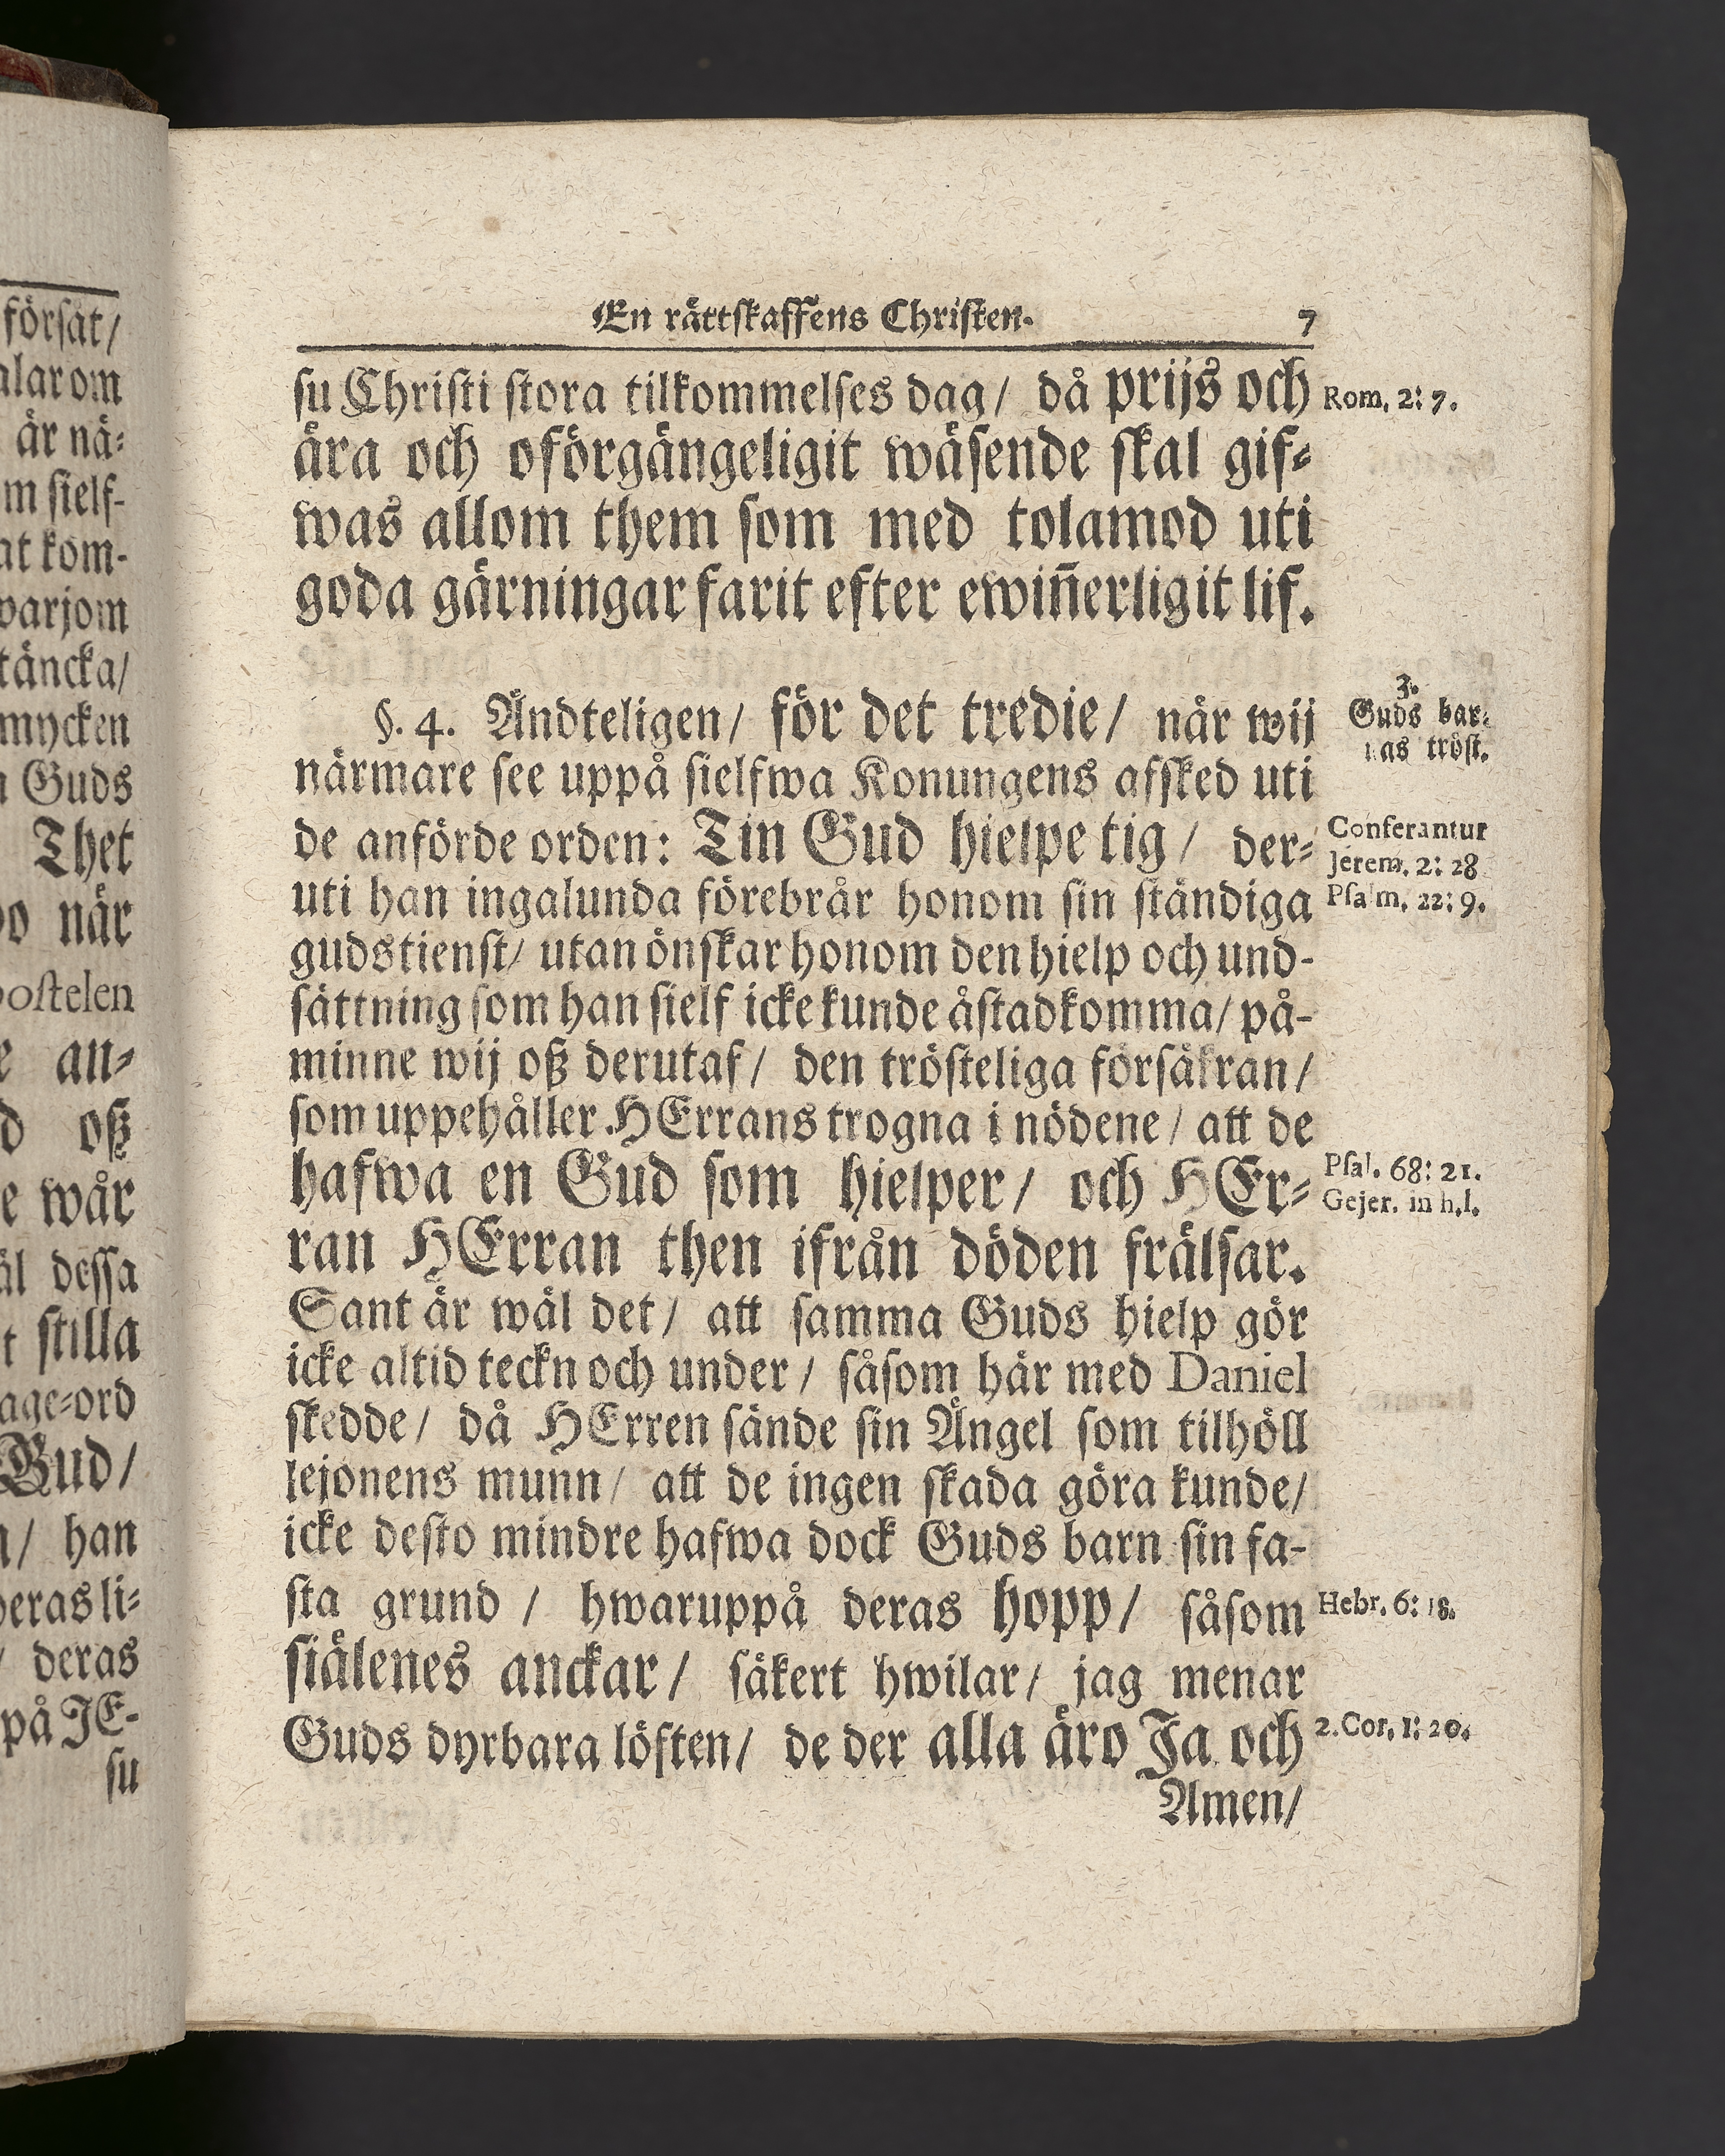 försåt/
alar om
är nä⸗
m sielf-
at kom-
warjom
täncka/
mycken
Guds
Thet
när
postelen
an⸗
oß
wår
dessa
stilla
age⸗ord
Gud/
han
deras li⸗
deras
på JE-
su
En rättskaffens Christen. 7
su Christi stora tilkommelses dag/ då prijs och Rom. 2: 7.
ära och oförgängeligit wäsende skal gif⸗
was allom them som med tolamod uti
goda gärningar farit efter ewin̄erligit lif.
3.
§. 4. Ändteligen/ för det tredie/ när wij Guds bar⸗
nas tröst.
närmare see uppå sielfwa Konungens afsked uti
de anförde orden: Tin Gud hielpe tig/ der⸗ Conferantur
Jerem. 2: 28
uti han ingalunda förebrår honom sin ständiga Psalm. 22: 9.
gudstienst/ utan önskar honom den hielp och und-
sättning som han sielf icke kunde åstadkomma/ på-
minne wij oß derutaf/ den trösteliga försäkran/
som uppehåller HErrans trogna i nödene/ att de
hafwa en Gud som hielper/ och HEr⸗ Psal. 68: 21.
Gejer. in h.l.
ran HErran then ifrån döden frälsar.
Sant är wäl det/ att samma Guds hielp gör
icke altid teckn och under/ såsom här med Daniel
skedde/ då HErren sände sin Ängel som tilhöll
lejonens munn/ att de ingen skada göra kunde/
icke desto mindre hafwa dock Guds barn sin fa-
sta grund/ hwaruppå deras hopp/ såsom Hebr. 6: 18.
siälenes anckar/ säkert hwilar/ jag menar
Guds dyrbara löften/ de der alla äro Ja och 2. Cor. 1: 20.
Amen/